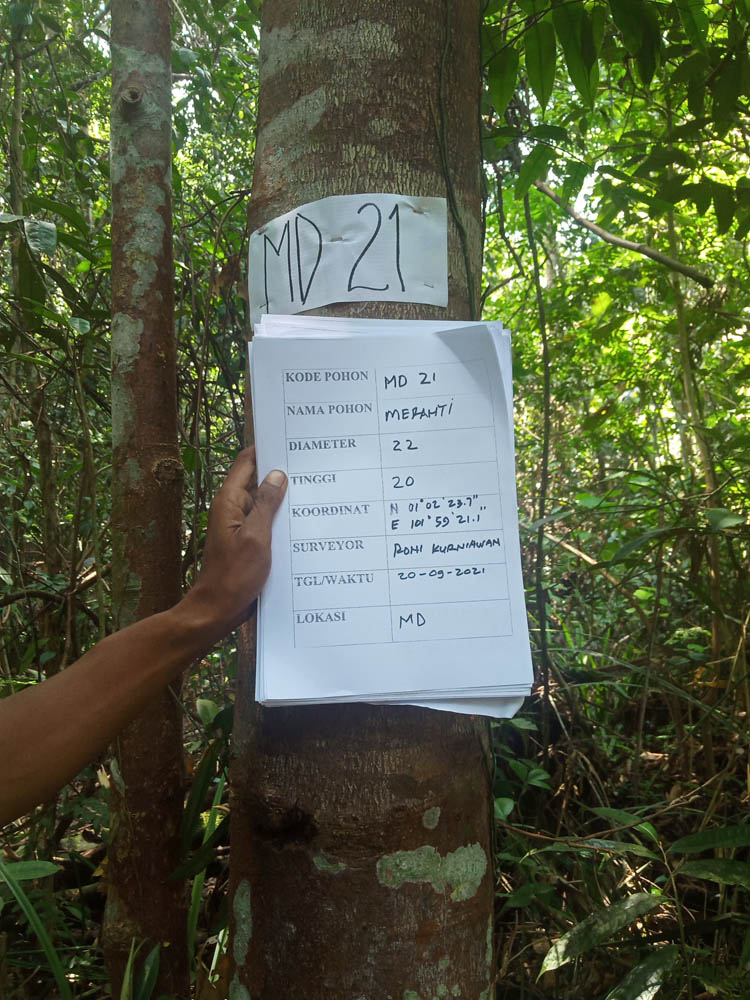 MD 21
KODE POHON MD 21
NAMA POHON MERAHTi
DIAMETER 22
TINGGI 20
KOORDINAT N 01°02'23.7"
E 101°59'21.1"
SURVEYOR RONI KURNIAWAN
TGL/WAKTU 20-09-2021
LOKASI MD